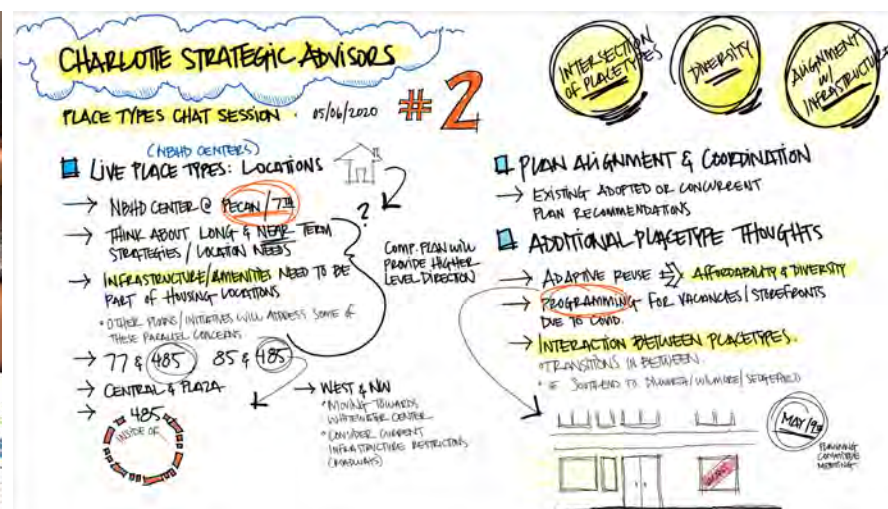 CHARLOTTE STRATEGIC ADVISORS
PLACE TYPES CHAT SESSION · 05/06/2020
#2
INTERSECTION
OF PLACETYPES
DIVERSITY
ALIGNMENT
W/
INFRASTRUCTURE
(NBHD CENTERS)
LIVE PLACE TYPES: LOCATIONS
→ NBHD CENTER @ PECAN/7TH
→ THINK ABOUT LONG & NEAR TERM
STRATEGIES/LOCATION NEEDS
→ INFRASTRUCTURE/AMENITIES NEED TO BE
PART OF HOUSING LOCATIONS
• OTHER PLANS/INITIATIVES WILL ADDRESS SOME OF
THESE PARALLEL CONCERNS.
→ 77 & 485 85 & 485
→ CENTRAL & PLAZA
→ 485
INSIDE OF
?
COMP. PLAN WILL
PROVIDE HIGHER
LEVEL DIRECTION
→ WEST & NW
• MOVING TOWARDS
WHITEWATER CENTER
• CONSIDER CURRENT
INFRASTRUCTURE RESTRICTIONS
(ROADWAYS)
PLAN ALIGNMENT & COORDINATION
→ EXISTING ADOPTED OR CONCURRENT
PLAN RECOMMENDATIONS
ADDITIONAL PLACETYPE THOUGHTS
→ ADAPTIVE REUSE ⇒ AFFORDABILITY & DIVERSITY
→ PROGRAMMING FOR VACANCIES/STOREFRONTS
DUE TO COVID.
→ INTERACTION BETWEEN PLACETYPES.
• TRANSITIONS IN BETWEEN.
SOUTHEND TO DILWORTH/WILMORE/SEDGEFIELD
MAY/
PLANNING
COMMITTEE
MEETING